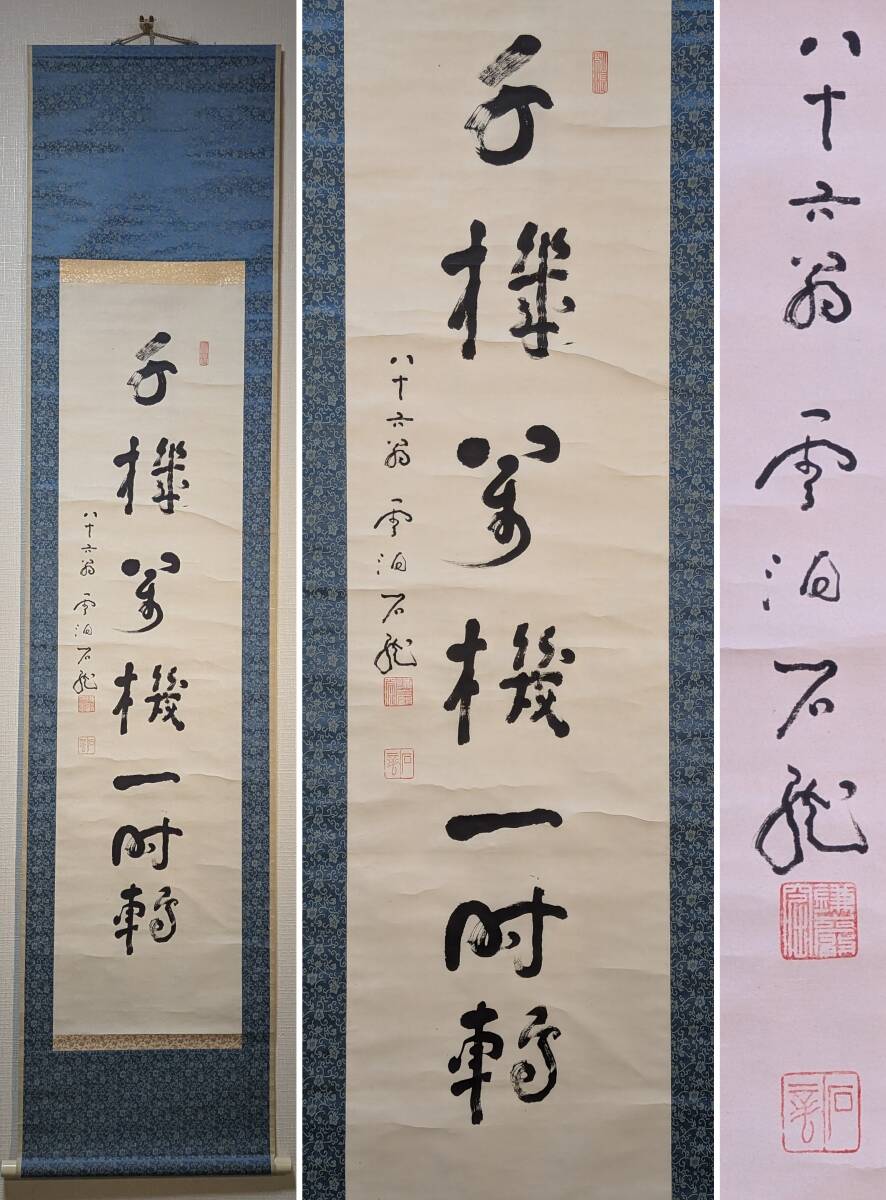 千機萬機一時轉
八十六翁 雲泊石龍
千機萬機一時轉
八十六翁 雲泊石龍
八十六翁 雲泊石龍